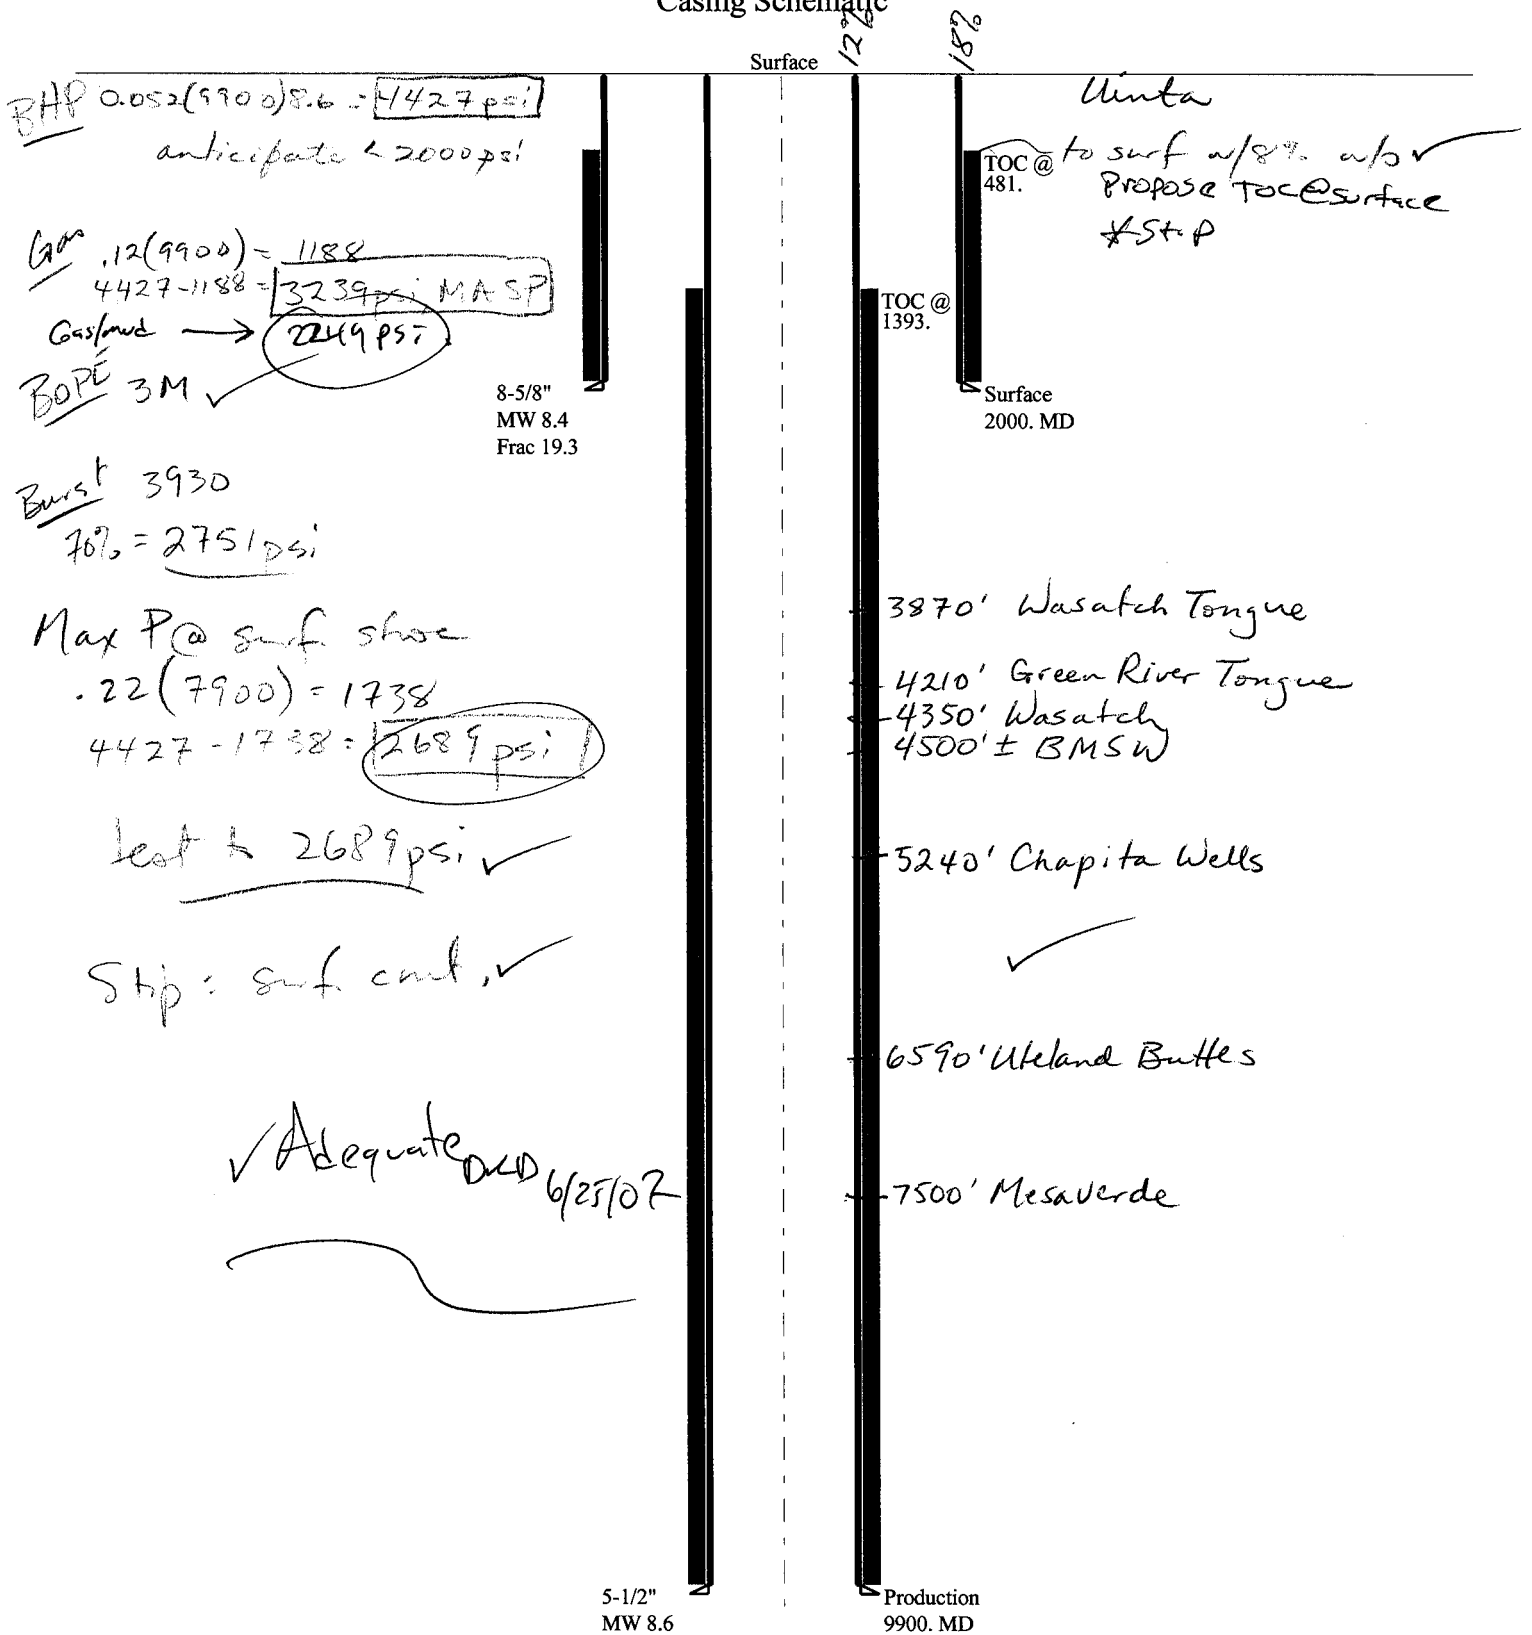 Casing Schematic
12%
18%
Surface
BHP 0.052(9900)8.6 = 4427 psi
anticipate < 2000 psi
Gas .12(9900) = 1188
4427-1188 = 3239 psi MASP
Gas/mud → 2249 psi
BOPE 3M ✓
Burst 3930
70% = 2751 psi
Max P @ surf. shoe
.22(7900) = 1738
4427 - 1738 = 2689 psi
test to 2689 psi ✓
Stip: surf. cmt. ✓
✓ Adequate DKD 6/25/07
Uinta
TOC @
481.
to surf w/8% w/o ✓
Propose TOC@surface
*Stip
TOC @
1393.
8-5/8"
MW 8.4
Frac 19.3
Surface
2000. MD
3870' Wasatch Tongue
4210' Green River Tongue
4350' Wasatch
4500' ± BMSW
5240' Chapita Wells
✓
6590' Uteland Buttes
7500' Mesaverde
5-1/2"
MW 8.6
Production
9900. MD